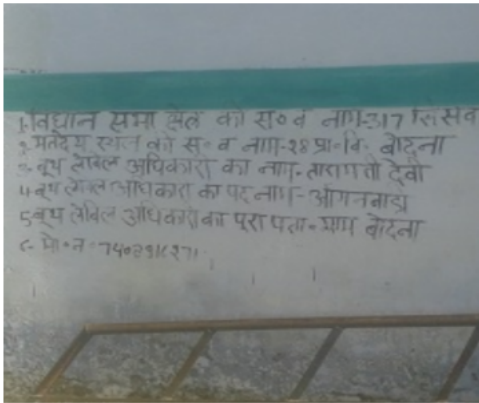 1. विधान सभा क्षेत्र की सं० व नाम-317 सिसव
2. मतदेय स्थल की सं० व नाम-28 प्रा० वि० बोदना
3. बूथ लेबिल अधिकारी का नाम- तारामती देवी
4. बूथ लेबिल अधिकारी का पद नाम- आंगनबाड़ी
5. बूथ लेबिल अधिकारी का पूरा पता- ग्राम बोदना
6- मो० न०